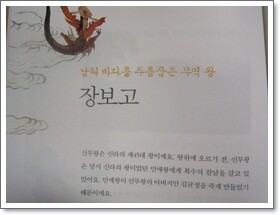 남해 바다를 주름잡은 무역 왕
장보고
신무왕은 신라의 제45대 왕이에요. 왕위에 오르기 전, 신무왕
은 당시 신라의 왕이었던 민애왕에게 복수의 칼날을 갈고 있
었어요. 민애왕이 신무왕의 아버지인 김균정을 죽게 만들었기
때문이에요.